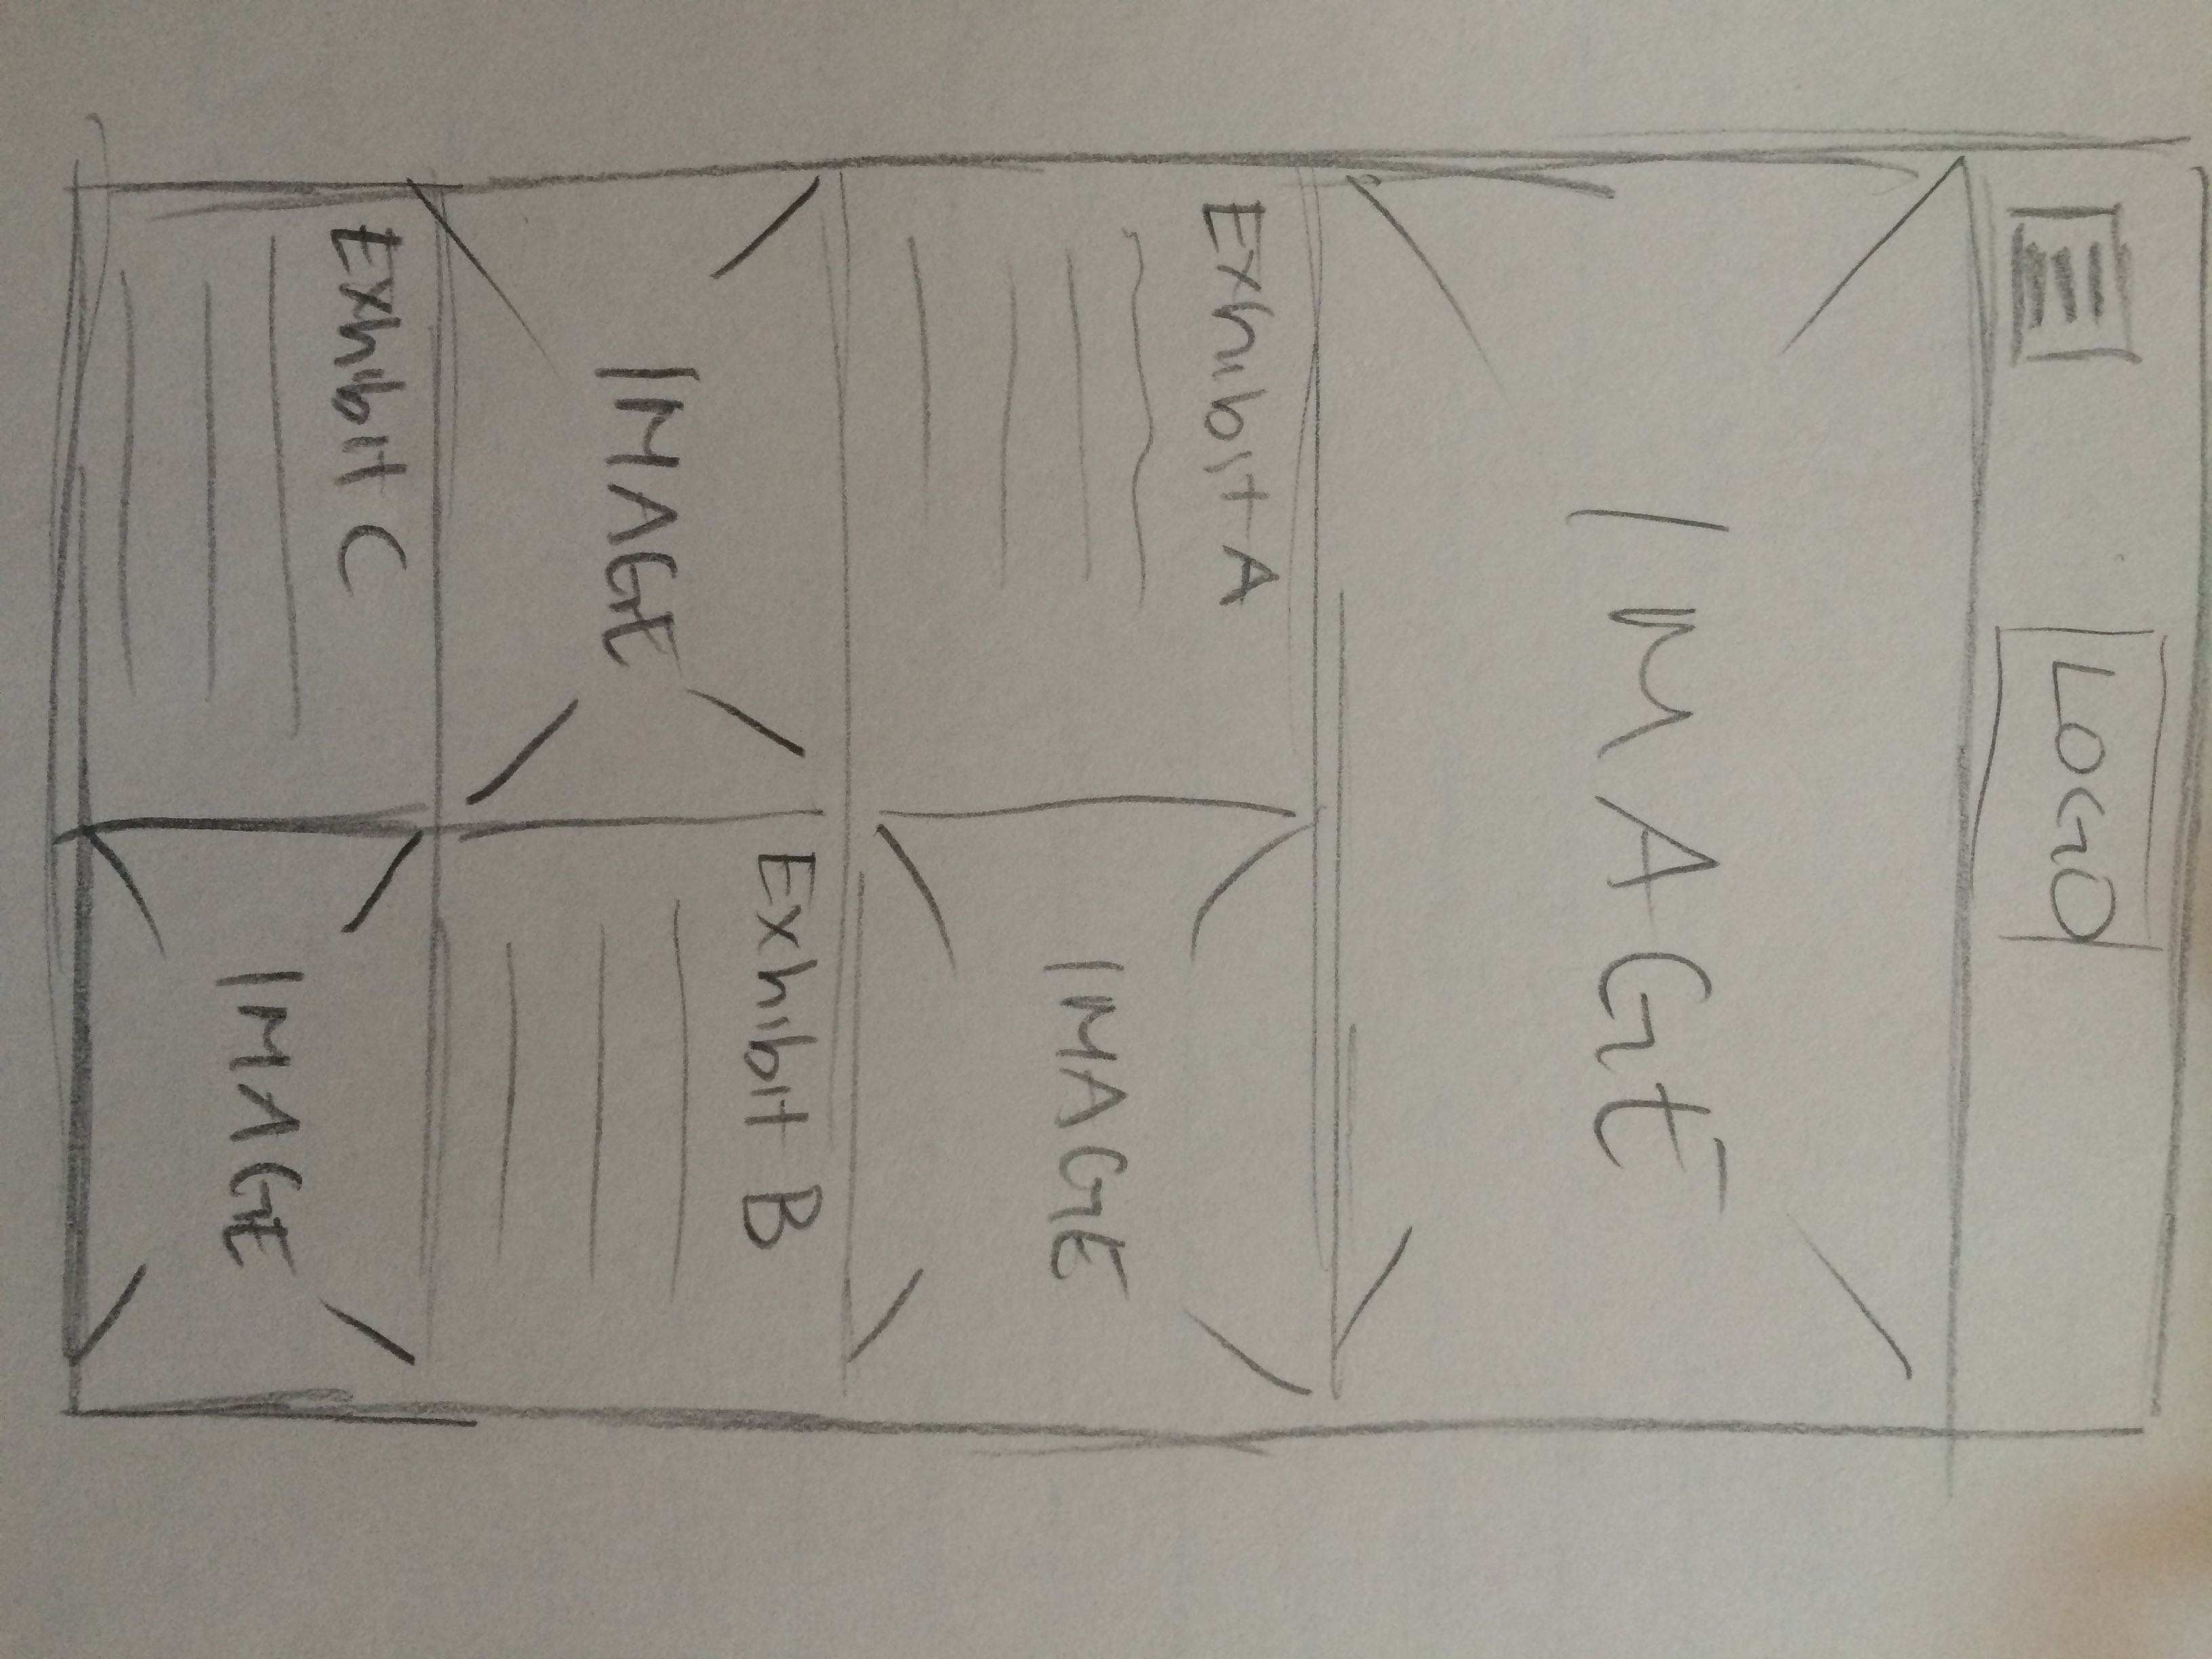 LOGO
IMAGE
Exhibit A
IMAGE
IMAGE
Exhibit B
Exhibit C
IMAGE